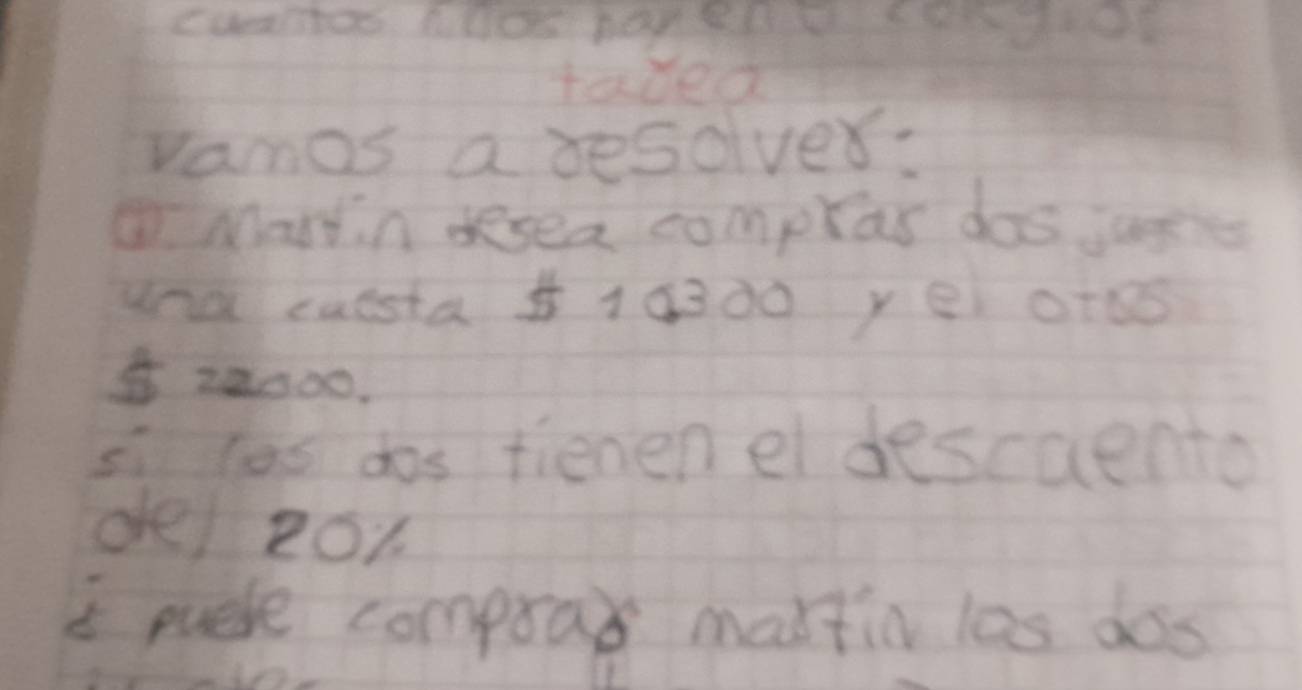 cuantos niños hay en el
tarea
vamos a resolver:
① Martin desea comprar dos juguetes
una cuesta $ 10300 y el otro
$ 22000.
si los dos tienen el descuento
del 20%
¿ puede comprar martin los dos